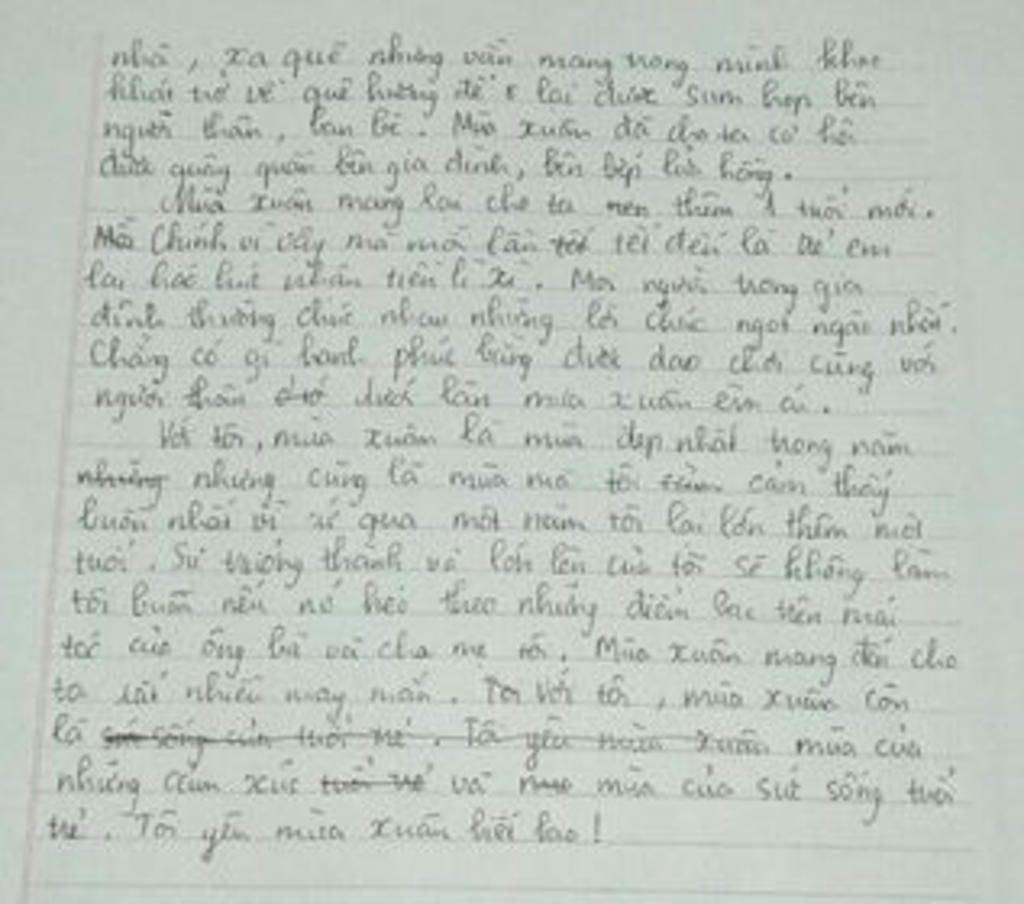 nhà, xa quê nhưng vẫn mang trong mình khao
khát trở về quê hương để lại được sum họp bên
người thân, bạn bè. Mùa xuân đã cho ta cơ hội
được quây quần bên gia đình, bên bếp lửa hồng.
Mùa xuân mang lại cho ta thêm 1 tuổi mới.
Chính vì vậy mà mỗi lần tết đến là trẻ em
lại háo hức nhận tiền lì xì. Mọi người trong gia
đình thường chúc nhau những lời chúc ngọt ngào nhất.
Chẳng có gì hạnh phúc bằng được dạo chơi cùng với
người thân dưới làn mưa xuân êm ái.
Với tôi, mùa xuân là mùa đẹp nhất trong năm
nhưng cũng là mùa mà tôi cảm thấy
buồn nhất vì sẽ qua một năm tôi lại lớn thêm một
tuổi. Sự trưởng thành và lớn lên của tôi sẽ không làm
tôi buồn nếu nó kéo theo những điểm bạc trên mái
tóc của ông bà và cha mẹ tôi. Mùa xuân mang đến cho
ta rất nhiều may mắn. với tôi, mùa xuân còn
là sức sống của tuổi trẻ. Tôi yêu mùa xuân mùa của
những cảm xúc tuổi trẻ và mùa của sức sống tuổi
trẻ. Tôi yêu mùa xuân biết bao!